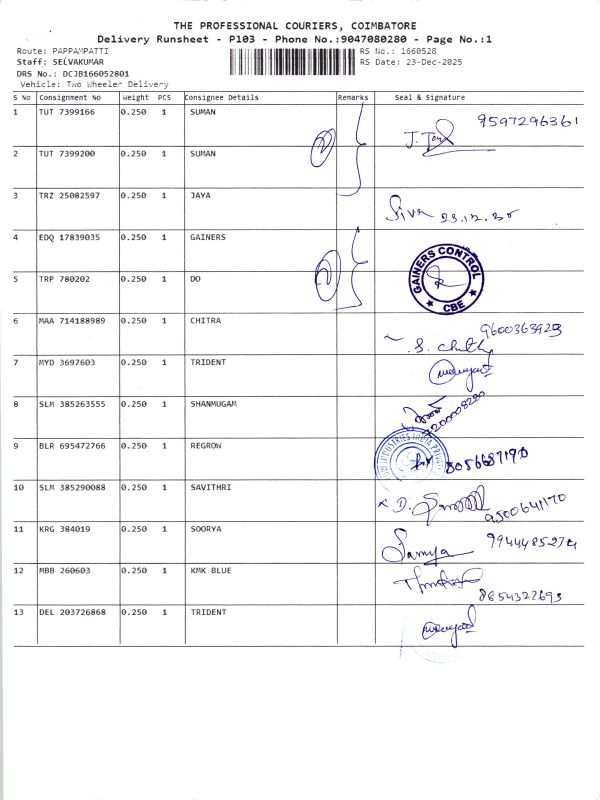 THE PROFESSIONAL COURIERS, COIMBATORE
Delivery Runsheet - P103 - Phone No.:9047080280 - Page No.:1
Route: PAPPAMPATTI RS No.: 1660528
Staff: SELVAKUMAR RS Date: 23-Dec-2025
DRS No.: DCJB166052801
Vehicle: Two Wheeler Delivery
S No Consignment No Weight PCS Consignee Details Remarks Seal & Signature
1 TUT 7399166 0.250 1 SUMAN 9597296361
2 TUT 7399200 0.250 1 SUMAN
3 TRZ 25082597 0.250 1 JAYA Siva 23.12.25
4 EDQ 17839035 0.250 1 GAINERS GAINERS CONTROL CBE
5 TRP 780202 0.250 1 DO
6 MAA 714188989 0.250 1 CHITRA 9600363923
7 MYD 3697603 0.250 1 TRIDENT
8 SLM 385263555 0.250 1 SHANMUGAM
9 BLR 695472766 0.250 1 REGROW INDUSTRIES INDIA 8056687190
10 SLM 385290088 0.250 1 SAVITHRI 9500641170
11 KRG 384019 0.250 1 SOORYA 9944485274
12 MBB 260603 0.250 1 KMK BLUE 8654322693
13 DEL 203726868 0.250 1 TRIDENT